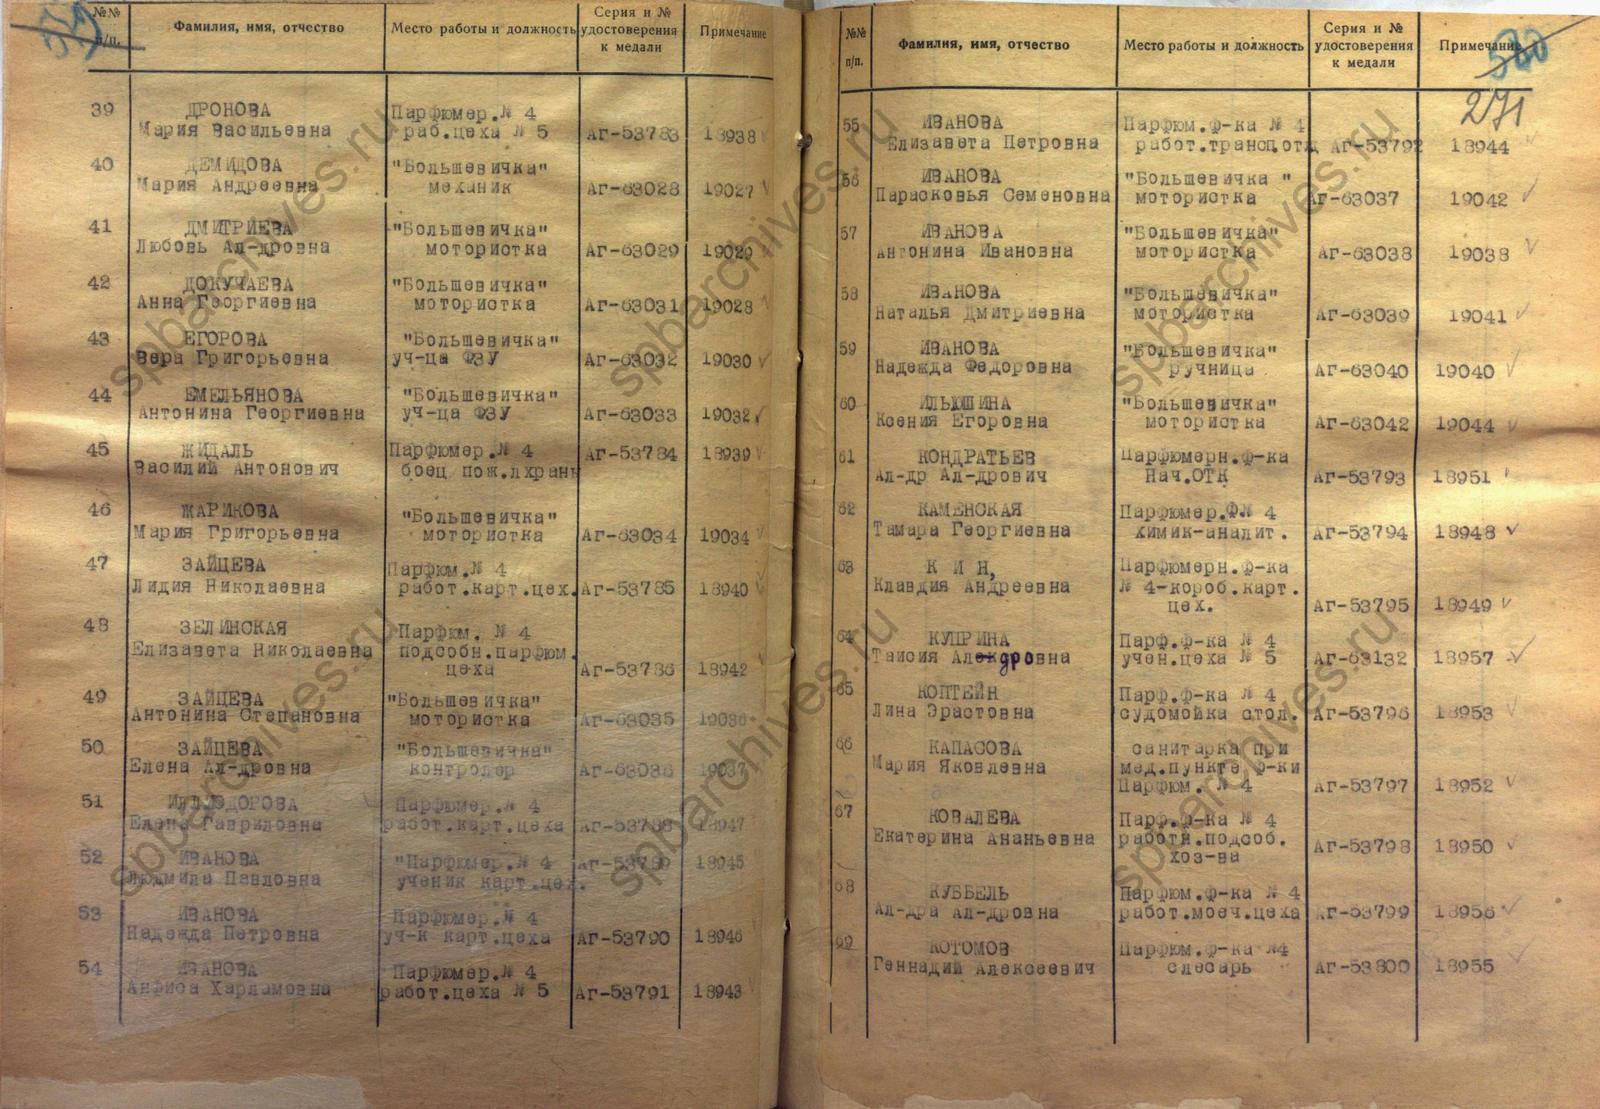 №№ п/п. Фамилия, имя, отчество Место работы и должность Серия и № удостоверения к медали Примечание
39 ДРОНОВА Парфюмер.№ 4
Мария Васильевна раб.цеха № 5 Аг-53783 18938
40 ДЕМИДОВА "Большевичка"
Мария Андреевна механик Аг-63028 19027
41 ДМИТРИЕВА "Большевичка"
Любовь Ал-дровна мотористка Аг-63029 19029
42 ДОКУЧАЕВА "Большевичка"
Анна Георгиевна мотористка Аг-63031 19028
43 ЕГОРОВА "Большевичка"
Вера Григорьевна уч-ца ФЗУ Аг-63032 19030
44 ЕМЕЛЬЯНОВА "Большевичка"
Антонина Георгиевна уч-ца ФЗУ Аг-63033 19032
45 ЖИДАЛЬ Парфюмер.№ 4 Аг-53784 18939
Василий Антонович боец пож.лхраны
46 ЖАРИКОВА "Большевичка"
Мария Григорьевна мотористка Аг-63034 19034
47 ЗАЙЦЕВА Парфюм.№ 4
Лидия Николаевна работ.карт.цех. Аг-53785 18940
48 ЗЕЛИНСКАЯ Парфюм. № 4
Елизавета Николаевна подсобн.парфюм.
цеха Аг-53786 18942
49 ЗАЙЦЕВА "Большевичка"
Антонина Степановна мотористка Аг-63035 19036
50 ЗАЙЦЕВА "Большевичка"
Елена Ал-дровна контролер Аг-63036 19037
51 Парфюмер.№ 4
Елена Гавриловна работ.карт.цеха Аг-53788 18947
52 ИВАНОВА "Парфюмер.№ 4 Аг-53789 18945
Людмила Павловна ученик карт.цех.
53 ИВАНОВА Парфюмер.№ 4
Надежда Петровна уч-к карт.цеха Аг-53790 18946
54 ИВАНОВА Парфюмер.№ 4
Анфиса Харламовна работ.цеха № 5 Аг-53791 18943
№№ п/п. Фамилия, имя, отчество Место работы и должность Серия и № удостоверения к медали Примечание
271
55 ИВАНОВА Парфюм.ф-ка № 4
Елизавета Петровна работ.трансп.отд Аг-53792 18944
56 ИВАНОВА "Большевичка "
Парасковья Семеновна мотористка Аг-63037 19042
57 ИВАНОВА "Большевичка"
Антонина Ивановна мотористка Аг-63038 19038
58 ИВАНОВА "Большевичка"
Наталья Дмитриевна мотористка Аг-63039 19041
59 ИВАНОВА "Большевичка"
Надежда Федоровна ручница Аг-63040 19040
60 ИЛЬЮШИНА "Большевичка"
Ксения Егоровна мотористка Аг-63042 19044
61 КОНДРАТЬЕВ Парфюмерн.ф-ка
Ал-др Ал-дрович Нач.ОТК Аг-53793 18951
62 КАМЕНСКАЯ Парфюмер.Ф№ 4
Тамара Георгиевна химик-аналит. Аг-53794 18948
63 К И Н, Парфюмерн.ф-ка
Клавдия Андреевна № 4-короб.карт.
цех. Аг-53795 18949
64 КУПРИНА Парф.ф-ка № 4
Таисия Алекдровна учен.цеха № 5 Аг-63132 18957
65 КОПТЕЙН Парф.ф-ка № 4
Лина Эрастовна судомойка стол. Аг-53796 18953
66 КАПАСОВА санитарка при
Мария Яковлевна мед.пункте ф-ки
Парфюм. № 4 Аг-53797 18952
67 КОВАЛЕВА Парф.ф-ка № 4
Екатерина Ананьевна работн.подсоб.
хоз-ва Аг-53798 18950
68 КУББЕЛЬ Парфюм.ф-ка № 4
Ал-дра Ал-дровна работ.моеч.цеха Аг-53799 18956
69 КОТОМОВ Парфюм.ф-ка №4
Геннадий Алексеевич слесарь Аг-53800 18955
spbarchives.ru
spbarchives.ru
spbarchives.ru
spbarchives.ru
spbarchives.ru
spbarchives.ru